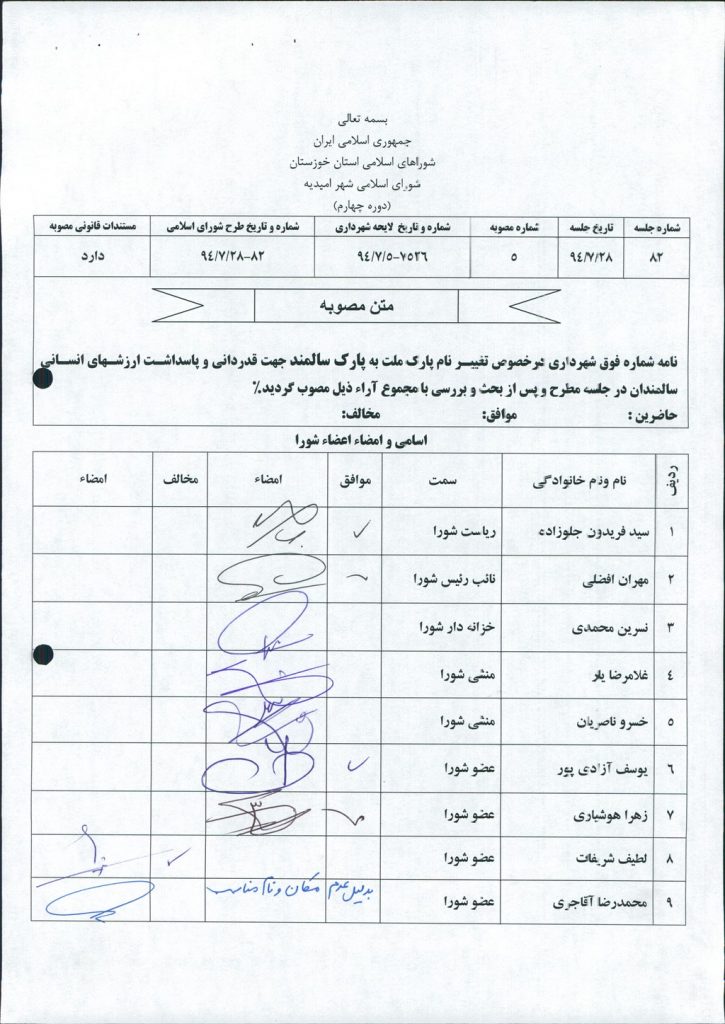 بسمه تعالی
جمهوری اسلامی ایران
شوراهای اسلامی استان خوزستان
شورای اسلامی شهر امیدیه
(دوره چهارم)
شماره جلسه تاریخ جلسه شماره مصوبه شماره و تاریخ لایحه شهرداری شماره و تاریخ طرح شورای اسلامی مستندات قانونی مصوبه
۸۲ ۹٤/۷/۲۸ ۵ ۹٤/۷/۵-۷۵۲٦ ۹٤/۷/۲۸-۸۲ دارد
متن مصوبه
نامه شماره فوق شهرداری درخصوص تغییر نام پارک ملت به پارک سالمند جهت قدردانی و پاسداشت ارزشهای انسانی
سالمندان در جلسه مطرح و پس از بحث و بررسی با مجموع آراء ذیل مصوب گردید٪
حاضرین : موافق: مخالف:
اسامی و امضاء اعضاء شورا
ردیف نام ونام خانوادگی سمت موافق امضاء مخالف امضاء
۱ سید فریدون جلوزاده ریاست شورا
۲ مهران افضلی نائب رئیس شورا
۳ نسرین محمدی خزانه دار شورا
٤ غلامرضا یار منشی شورا
۵ خسرو ناصریان منشی شورا
٦ یوسف آزادی پور عضو شورا
۷ زهرا هوشیاری عضو شورا
۸ لطیف شریفات عضو شورا
۹ محمدرضا آقاجری عضو شورا بدلیل عدم مکان و نام مناسب